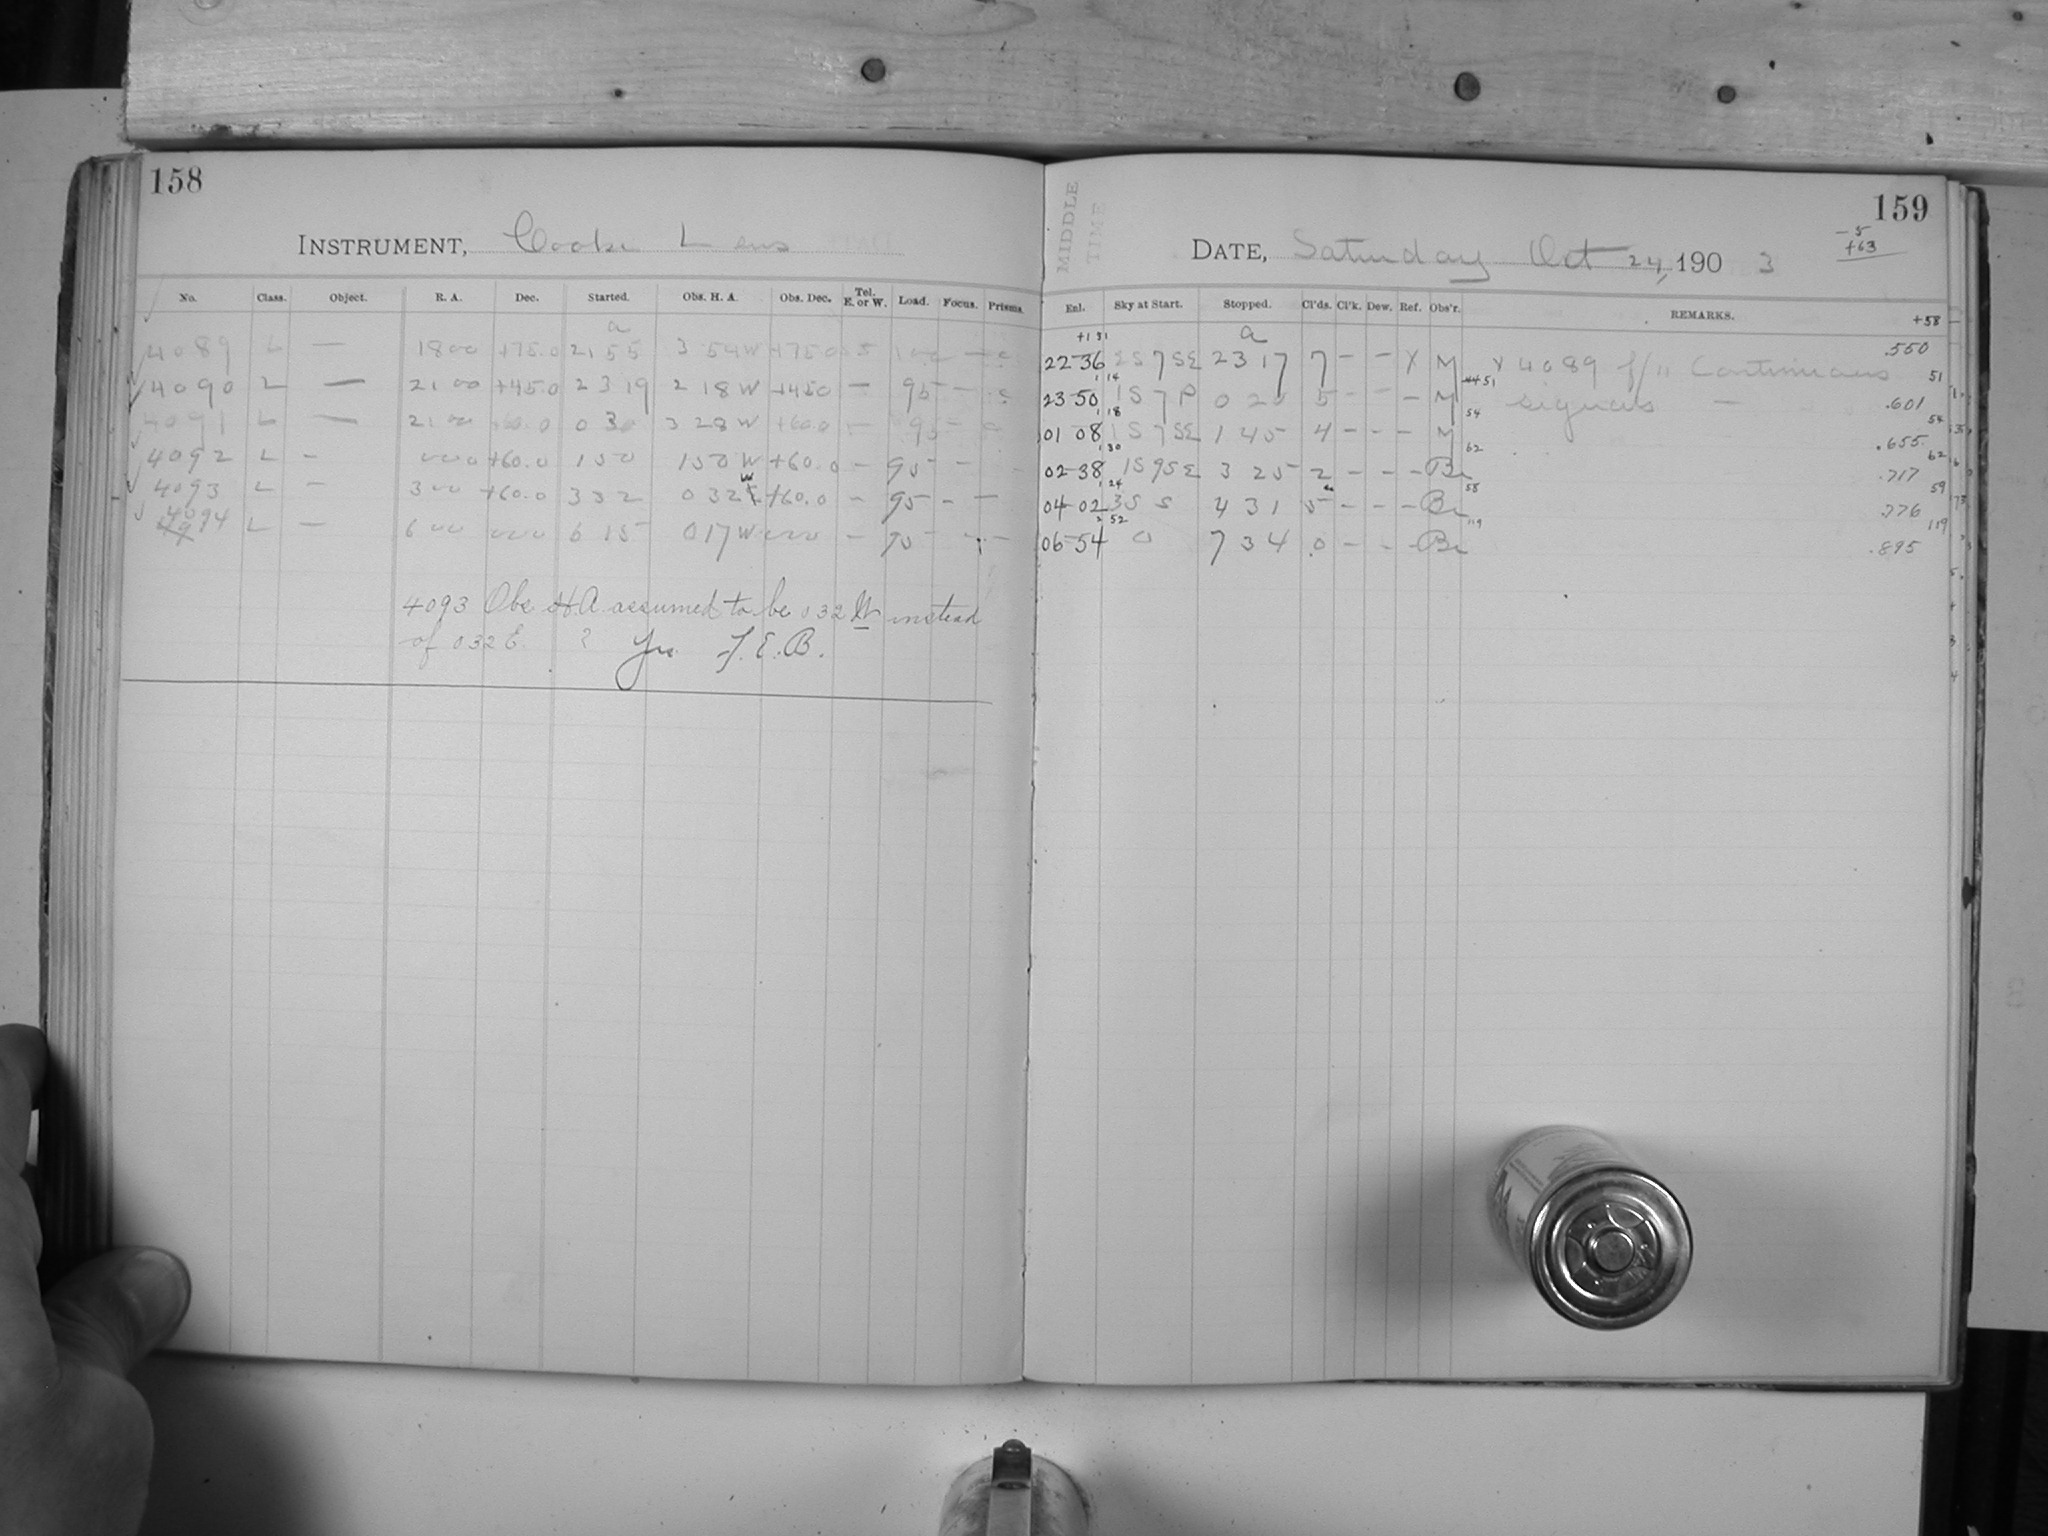 158
INSTRUMENT, Cooke Lens
No. Class. Object. R. A. Dec. Started. Obs. H. A. Obs. Dec. Tel. E. or W. Load. Focus. Prisms.
a
4089 L — 18 00 +75.0 21 55 3 54 W +75.0
4090 L — 21 00 +45.0 23 19 2 18 W +45.0 — 95 —
4091 L — 21 00 +60.0 0 30 3 28 W +60.0 — 95 —
4092 L — 0 00 +60.0 1 50 1 50 W +60.0 — 95 —
4093 L — 3 00 +60.0 3 32 0 32 W +60.0 — 95 — —
4094 L — 6 00 0 00 6 15 0 17 W 0 00 — 95 — —
4093 Obs. H.A. assumed to be 0 32 W instead
of 0 32 E. ? Yes. F. E. B.
MIDDLE
TIME
159
DATE, Saturday Oct 24, 190 3
-5
+63
Enl. Sky at Start. Stopped. Cl'ds. Cl'k. Dew. Ref. Obs'r. REMARKS. +58
a
22-36 2S 7 SE 23 17 7 — — X M X 4089 f/11 Continuous .550
1 14 51
23-50 1S 7 P 0 28 5 — — — M signals — .601
1 18 54 54
01 08 1S 7 SE 1 45 4 — — — M .655
1 30 62 62
02-38 1S 9SE 3 25 2 — — — Br .717
1 24 58 59
04-02 3S S 4 31 5 — — — Br .776
2 52 119 119
06-54 0 7 34 0 — — — Br .895